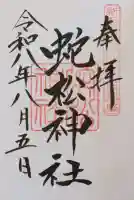 奉拝
蛇松神社
令和八年八月五日